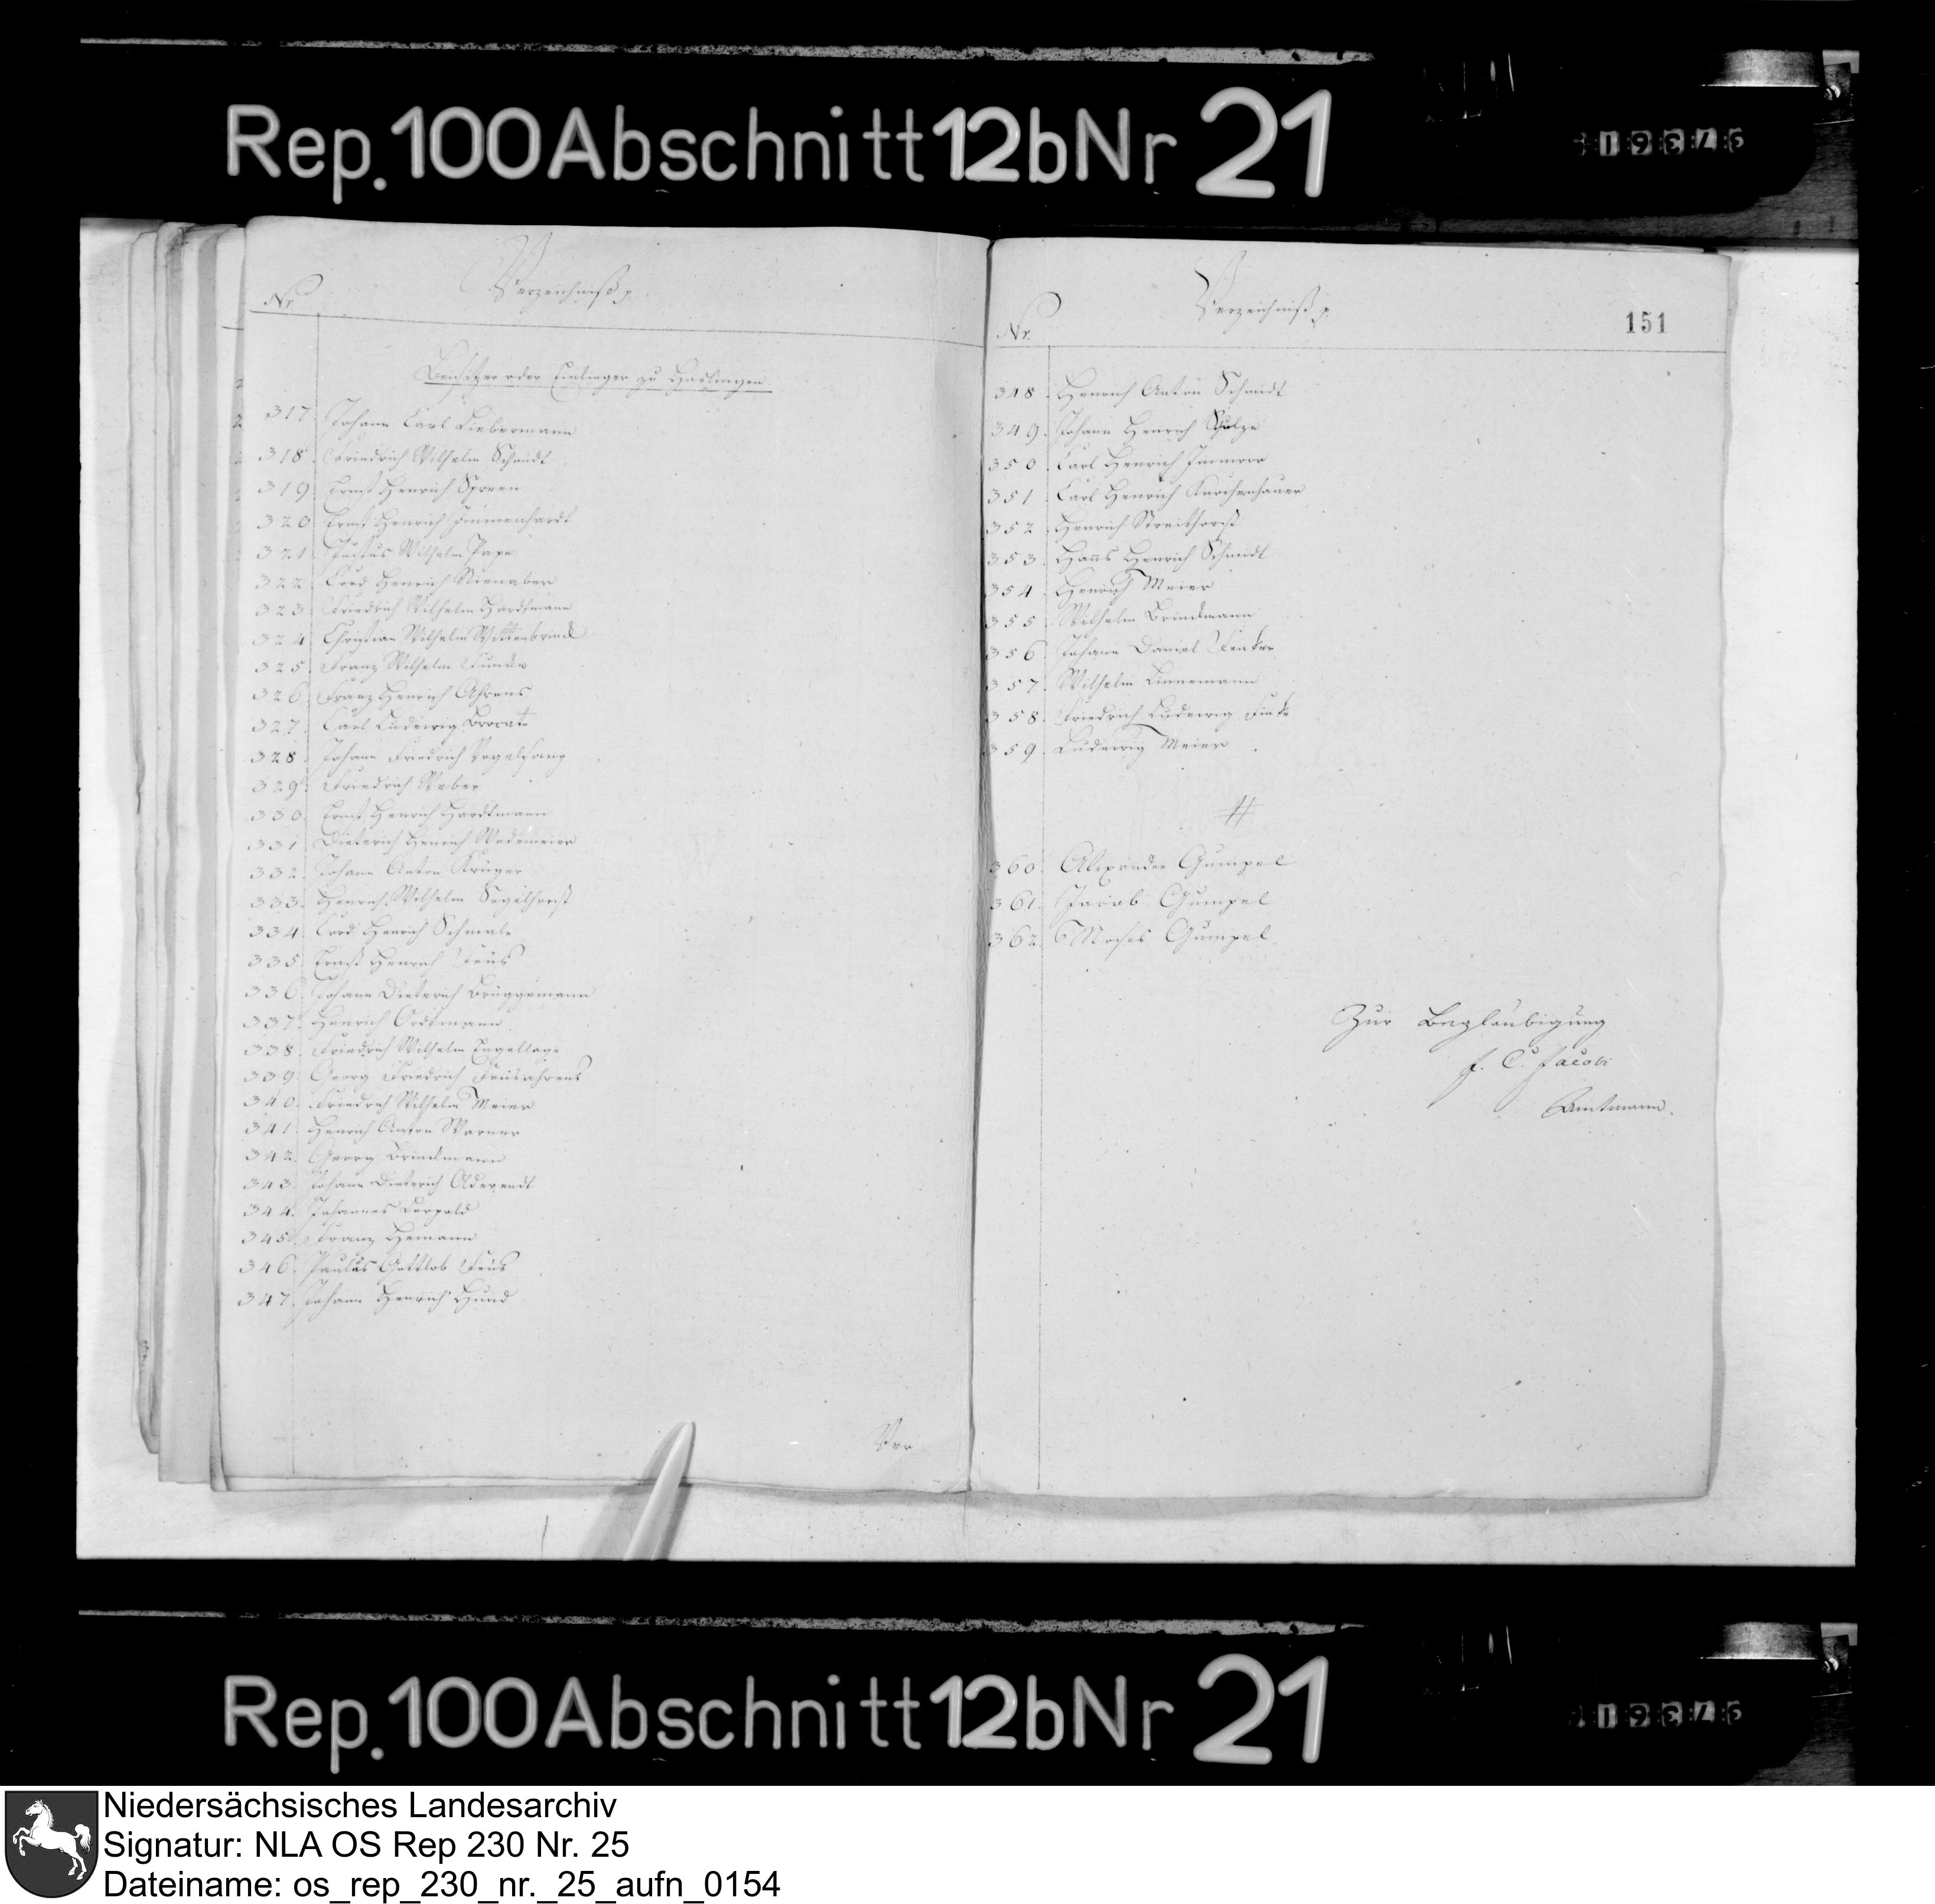 Rep. 100 Abschnitt 12b Nr 21
Verzeichniß p.
Nr.
Beysitzer oder Einlieger zu
317. Johann Carl Liebermann
318. Friedrich Wilhelm Schmidt
319. Ernst Henrich Spreen
320 Ernst Henrich
321 Justus Wilhelm Pape
322 Cord Henrich Nienaber
323 Friedrich Wilhelm Hardtmann
324 Christian Wilhelm Wittenbrinck
325 Franz Wilhelm
326 Franz Henrich Ahrens
327. Carl Ludewig
328. Johann Friedrich Vogelsang
329. Friedrich Weber
330. Ernst Henrich Hardtmann
331 Dieterich Henrich Wedemeier
332. Johann Anton Krüger
333. Henrich Wilhelm Segelhorst
334. Cord Henrich Schmale
335 Ernst Henrich
336. Johann Dieterich Brüggemann
337. Henrich Ordtmann
338. Friedrich Wilhelm Engellage
339. Georg Friedrich
340. Friedrich Wilhelm Meier
341. Henrich Anton Warner
342. Georg Brinckmann
343. Johann Dieterich
344. Johannes Leopold
345. Franz Hemann
346. Paulus Gottlob
347. Johann Henrich Hund
Ver
Verzeichniß p.
Nr.
151
348. Henrich Anton Schmidt
349. Johann Henrich Schulze
350. Carl Henrich
351. Carl Henrich
352. Henrich Streithorst
353. Hanns Henrich Schmidt
354. Henrich Meier
355 Wilhelm Brinckmann
356. Johann Daniel
357. Wilhelm Linnemann
358. Friedrich Ludewig Finke
359. Ludewig Meier
#
360. Alexander Gumpel
361. Jacob Gumpel
362. Moses Gumpel
Zur Beglaubigung
F. C. Jacobi
Amtmann.
Rep. 100 Abschnitt 12b Nr 21
Niedersächsisches Landesarchiv
Signatur: NLA OS Rep 230 Nr. 25
Dateiname: os_rep_230_nr._25_aufn_0154